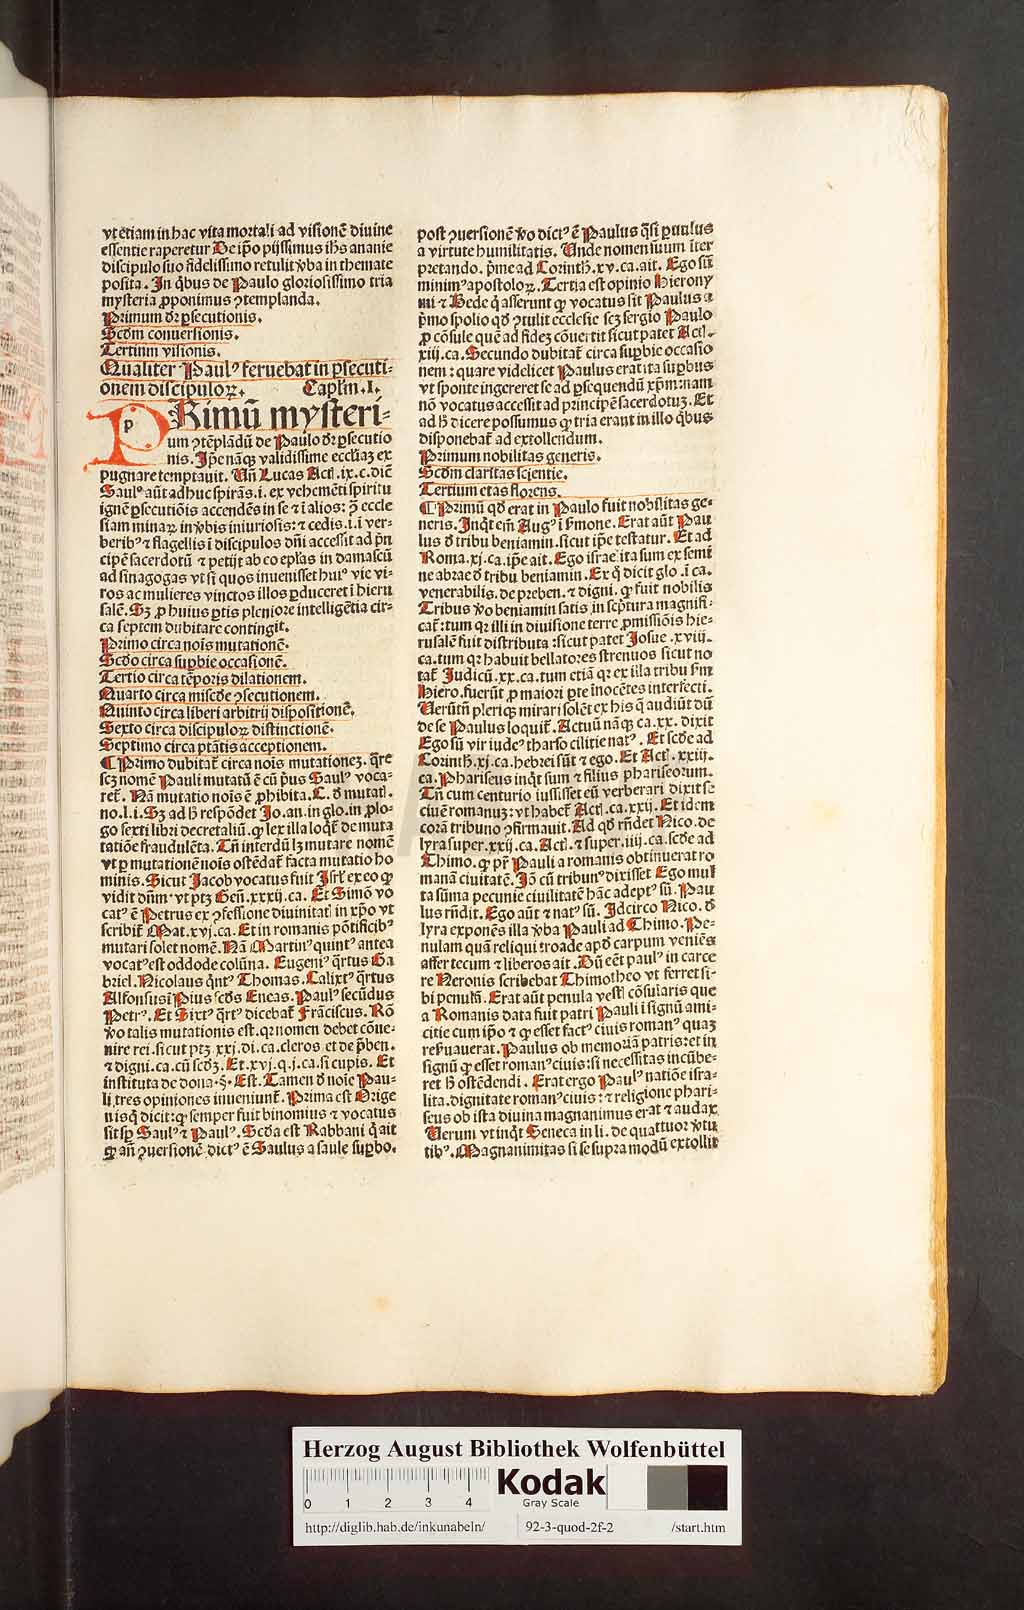 vt etiam in hac vita mortali ad visionē diuine
essentie raperetur De ip̄o pijssimus ih̄s ananie
discipulo suo fidelissimo retulit v̄ba in themate
posita. In q̄bus de Paulo gloriosissimo tria
mysteria ꝓponimus ꝯtemplanda.
Primum dr̄ ꝑsecutionis.
Scdm conuersionis.
Tertium visionis.
Qualiter Paulꝰ feruebat in ꝑsecuti-
onem discipuloꝝ. Caplm .I.
PRimū mysteri-
um ꝯtēplādū de Paulo dr̄ ꝑsecutio
nis. Ip̄e nāqꝫ validissime eccliaꝫ ex
pugnare temptauit. Un̄ Lucas Act. ix. c. diē
Saulꝰ aūt adhuc spirās .i. ex vehemēti spiritu
ignē ꝑsecutiōis accendēs in se ⁊ ī alios: ꝓ eccle
siam minaꝝ in v̄bis iniuriosis: ⁊ cedis .i. ī ver-
beribꝰ ⁊ flagellis ī discipulos dn̄i accessit ad pn̄
cipē sacerdotū ⁊ petijt ab eo ep̄las in damascū
ad sinagogas vt si quos inuenisset huiꝰ vie vi-
ros ac mulieres vinctos illos ꝑduceret ī hieru
salē. Sꝫ ꝓ huius ꝑtis pleniore intelligētia cir-
ca septem dubitare contingit.
Primo circa nois mutationē.
Scdo circa suꝑbie occasionē.
Tertio circa tēporis dilationem.
Quarto circa miscd̄e ꝯsecutionem.
Quinto circa liberi arbitrij dispositionē.
Sexto circa discipuloꝝ distinctionē.
Septimo circa ptātis acceptionem.
¶ Primo dubitat̄ circa nois mutationeꝫ. q̄re
scꝫ nomē Pauli mutatū ē cū pꝰus Saulꝰ voca-
ret̄. Nā mutatio nois ē ꝓhibita. C. d̄ mutat̄.
no. l. i. Sꝫ ad h̄ respōdet Jo. an. in glo. in ꝓlo-
go sexti libri decretaliū. ꝙ lex illa loqt̄ de muta
tatiōe fraudulēta. Tn̄ interdū lꝫ mutare nomē
vt ꝑ mutationē nois ostēdat̄ facta mutatio ho
minis. Sicut Jacob vocatus fuit Isrl̄ ex eo ꝙ
vidit dn̄m. vt ptꝫ Gen̄. xxxij. ca. Et Simō vo
catꝰ ē Petrus ex ꝯfessione diuinitat̄ in xp̄o vt
scribit̄ Mat. xvj. ca. Et in romanis pōtificibꝰ
mutari solet nomē. Nā Martinꝰ quintꝰ antea
vocatꝰ est oddo de colūna. Eugeniꝰ q̄rtus Ga
briel. Nicolaus qn̄tꝰ Thomas. Calixtꝰ q̄rtus
Alfonsus ī Pius scd̄s Eneas. Paulꝰ secūdus
Petrꝰ. Et Sixtꝰ q̄rtꝰ dicebat̄ Frāciscus. Rō
v̄o talis mutationis est. qꝛ nomen debet cōue-
nire rei. sicut ptꝫ. xxj. di. ca. cleros. et de p̄ben.
⁊ digni. ca. cū scdꝫ. Et .xvj. q. j. ca. si cupis. Et
instituta de dona. §. Est. Tamen d̄ noie Pau-
li, tres opiniones inueniunt̄. Prima est Orige
nis q̄ dicit: ꝙ semper fuit binomius ⁊ vocatus
sit sꝑ Saulꝰ ⁊ Paulꝰ. Scd̄a est Rabbani q̄ ait
ꝙ an̄ ꝯuersionē dictꝰ ē Saulus a saule suꝑbo.
post ꝯuersionē v̄o dictꝰ ē Paulus q̄si paulus
a virtute humilitatis. Unde nomen suum īter
pretando. p̄me ad Corinth. xv. ca. ait. Ego sū
minimꝰ apostoloꝝ. Tertia est opinio Hierony
mi ⁊ Bede q̄ asserunt ꝙ vocatus sit Paulus a
p̄mo spolio qd̄ ꝯtulit ecclesie scꝫ sergio Paulo
ꝓcōsule quē ad fideꝫ cōuertit sicut patet Act.
xiij. ca. Secundo dubitat̄ circa suꝑbie occasio
nem: quare videlicet Paulus erat ita suꝑbus
vt sponte ingereret se ad ꝑsequendū xp̄m: nam
nō vocatus accessit ad principē sacerdotuꝫ. Et
ad h̄ dicere possumus ꝙ tria erant in illo q̄bus
disponebat̄ ad extollendum.
Primum nobilitas generis.
Scdm claritas scientie.
Tertium etas florens.
¶ Primū qd̄ erat in Paulo fuit nobilitas ge-
neris. Inqt̄ em̄ Augꝰ ī s̄mone. Erat aūt Pau
lus d̄ tribu beniamin. sicut ip̄e testatur. Et ad
Roma. xj. ca. ip̄e ait. Ego israelita sum ex semi
ne abrae d̄ tribu beniamin. Ex q̄ dicit glo. ī ca.
venerabilis. de preben. ⁊ digni. ꝙ fuit nobilis
Tribus v̄o beniamin satis in scptura magnifi-
cat̄: tum qꝛ illi in diuisione terre ꝓmissiōis hie-
rusalē fuit distributa: sicut patet Josue .xviij.
ca. tum qꝛ habuit bellatores strenuos sicut no
tat̄ Judicū. xx. ca. tum etiā qꝛ ex illa tribu s̄m
Hiero. fuerūt ꝓ maiori ꝑte īnocētes interfecti.
Verūtn̄ pleriqꝫ mirari solēt ex his q̄ audiūt dū
de se Paulus loquit̄. Actuū nāqꝫ ca. xx. dixit
Ego sū vir iudeꝰ tharso cilitie natꝰ. Et scd̄e ad
Corinth. xj. ca. hebrei sūt ⁊ ego. Et Act. xxiij.
ca. Phariseus inqt̄ sum ⁊ filius phariseorum.
Tn̄ cum centurio iussisset eū verberari dixit se
ciuē romanuꝫ: vt habet̄ Act. ca. xxij. Et idem
corā tribuno ꝯfirmauit. Ad qd̄ rn̄det Nico. de
lyra super. xxij. ca. Act. ⁊ super. iiij. ca. scd̄e ad
Thimo. ꝙ pr̄ Pauli a romanis obtinuerat ro
manā ciuitatē. Jō cū tribunꝰ dixisset Ego mul
ta sūma pecunie ciuilitatē hāc adeptꝰ sū. Pau
lus rn̄dit. Ego aūt ⁊ natꝰ sū. Idcirco Nico. d̄
lyra exponēs illa v̄ba Pauli ad Thimo. Pe-
nulam quā reliqui troade apd̄ carpum veniēs
affer tecum ⁊ liberos ait. Dū eēt paulꝰ in carce
re Neronis scribebat Thimotheo vt ferret si-
bi penulā. Erat aūt penula vest̄ cōsularis que
a Romanis data fuit patri Pauli ī signū ami-
citie cum ip̄o ⁊ ꝙ esset factꝰ ciuis romanꝰ quaꝫ
res̄uauerat. Paulus ob memoriā patris: et in
signū ꝙ esset romanꝰ ciuis: si necessitas incūbe-
ret h̄ ostēdendi. Erat ergo Paulꝰ natiōe isra-
lita. dignitate romanꝰ ciuis: ⁊ religione phari-
seus ob ista diuina magnanimus erat ⁊ audax
Verum vt inqt̄ Seneca in li. de quattuor v̄tu
tibꝰ. Magnanimitas si se supra modū extollit
Herzog August Bibliothek Wolfenbüttel
0 1 2 3 4
Kodak
Gray Scale
http://diglib.hab.de/inkunabeln/ 92-3-quod-2f-2 /start.htm